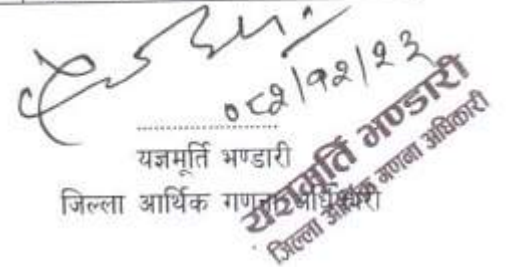 ०८२/१२/२३
....................
यज्ञमूर्ति भण्डारी
जिल्ला आर्थिक गणना अधिकारी
यज्ञमूर्ति भण्डारी
जिल्ला आर्थिक गणना अधिकारी